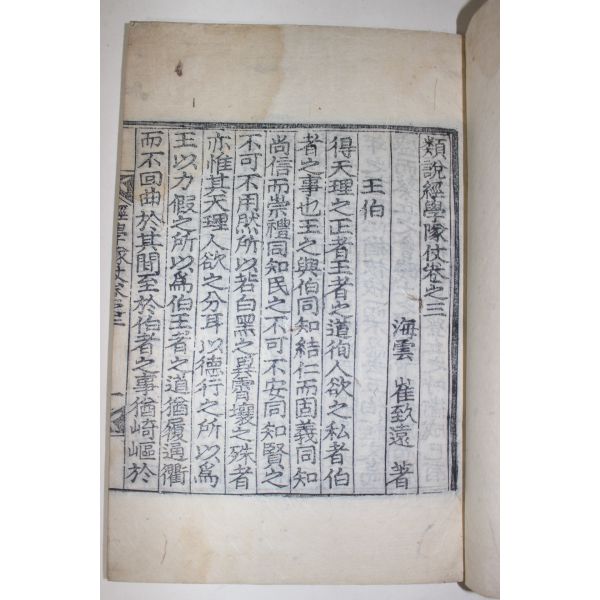 類說經學隊仗卷之三
海雲 崔致遠 著
王伯
得天理之正者王者之道徇人欲之私者伯
者之事也王之與伯同知結仁而固義同知
尚信而崇禮同知民之不可不安同知賢之
不可不用然所以若白黑之異霄壤之殊者
亦惟其天理人欲之分耳以德行之所以爲
王以力假之所以爲伯王者之道猶履通衢
而不回曲於其間至於伯者之事猶崎嶇於
經學隊仗卷之三
一